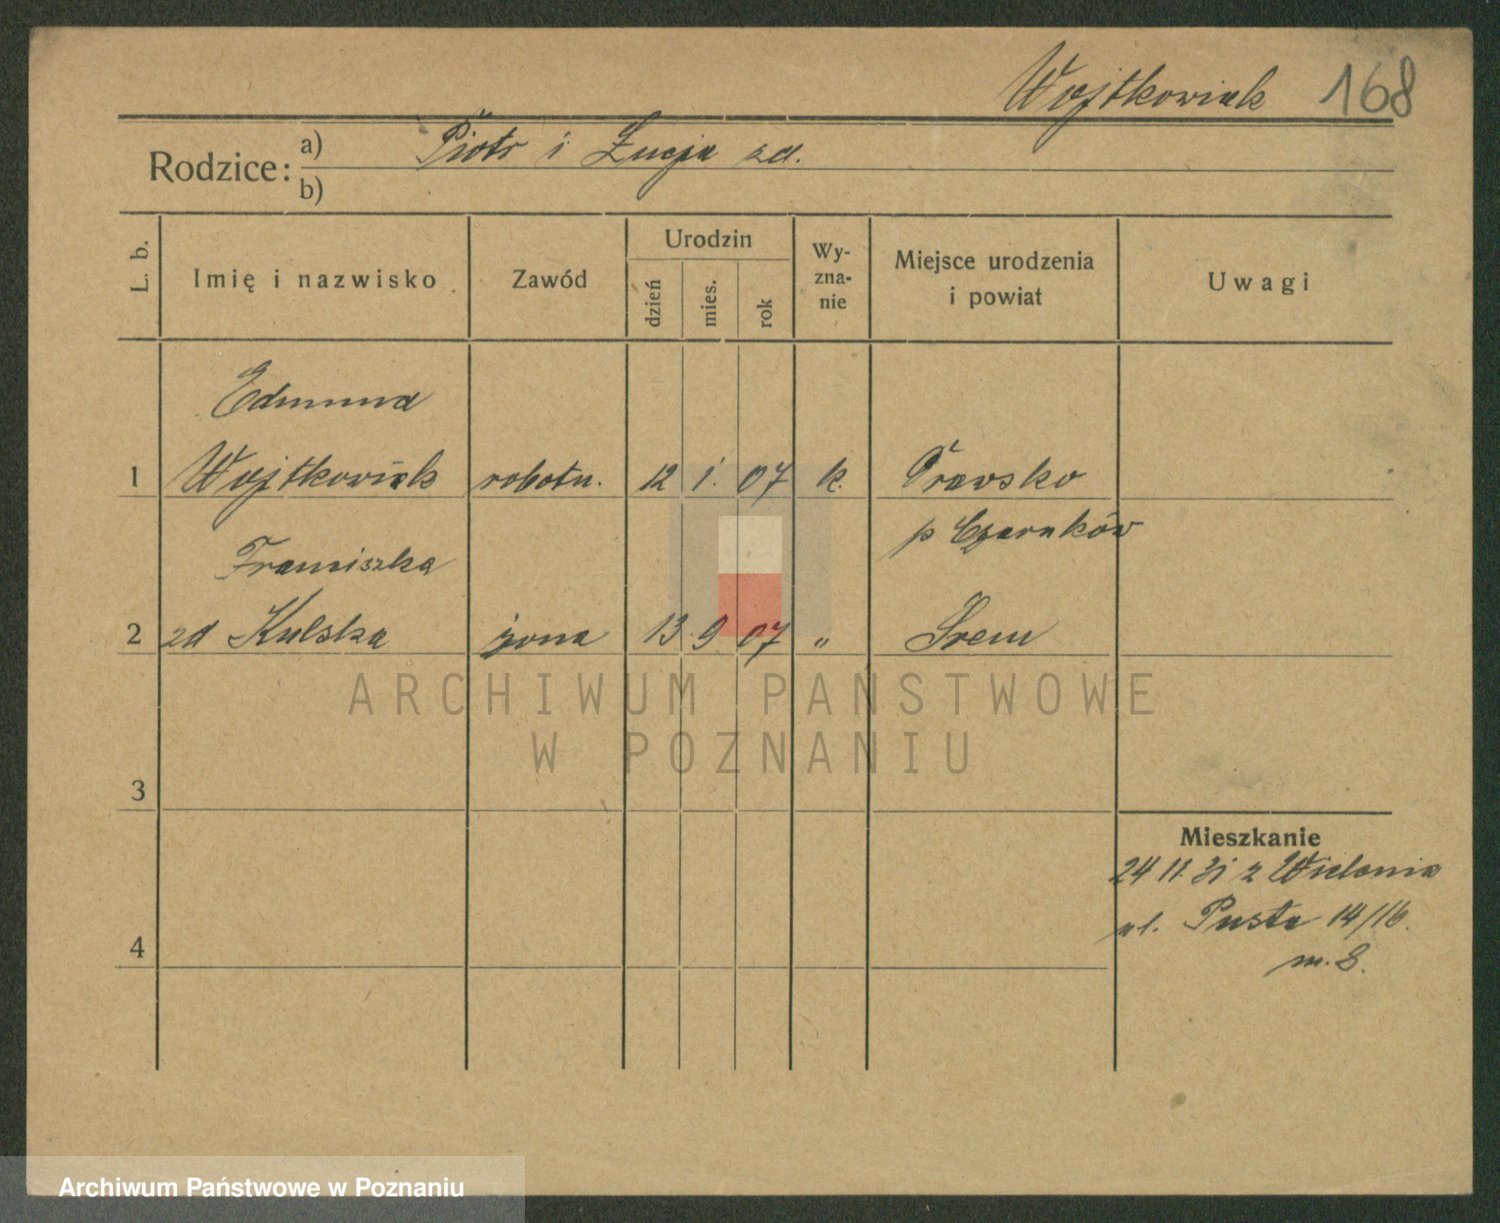 Wojtkowiak 168
Rodzice: a) Piotr i Łucja zd.
b)
L. b.
Imię i nazwisko
Zawód
Urodzin
dzień
mies.
rok
Wy-
zna-
nie
Miejsce urodzenia
i powiat
Uwagi
Edmund
1 Wojtkowiak robotn. 12 1. 07 k.
p Czarnków
Franciszka
2 zd Kulska żona 13 9 07 " Śrem
ARCHIWUM PAŃSTWOWE
W POZNANIU
3
Mieszkanie
24 11 31 z
ul. Pusta 14/16.
4
m. 8.
Archiwum Państwowe w Poznaniu